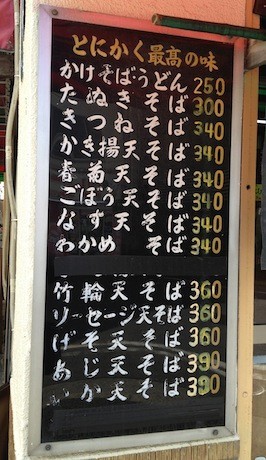 とにかく最高の味
かけそば・うどん 250
たぬきそば 300
きつねそば 340
かき揚天そば 340
春菊天そば 340
ごぼう天そば 340
なす天そば 340
わかめそば 340
竹輪天そば 360
ソーセージ天そば 360
げそ天そば 360
あじ天そば 390
いか天そば 390